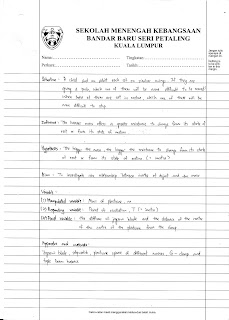 SEKOLAH MENENGAH KEBANGSAAN
BANDAR BARU SERI PETALING
KUALA LUMPUR
Nama:
Tingkatan:
Perkara:
Tarikh:
Situation : A child and an adult each sit on similar swings. If they are
giving a push which one of them will be more difficult to be moved?
When both of them are set in motion, which one of them will be
more difficult to stop.
Inference : The heavier mass offers a greater resistance to change from its state of
rest or from its state of motion.
Hypothesis : The bigger the mass, the bigger the resistance to change from its state of
rest or from its state of motion
Aim : To investigate the relationship between inertia of object and its mass
Variable :
(i) Manipulated variable : Mass of plasticine, m
(ii) Responding variable : Period of oscillation, T
(iii) Fixed variable : the stiffness of jigsaw blade and the distance of the centre
of the centre of the plasticine from the clamp
Apparatus and materials :
Jigsaw blade, stopwatch, plasticine spheres of different masses, G-clamp and